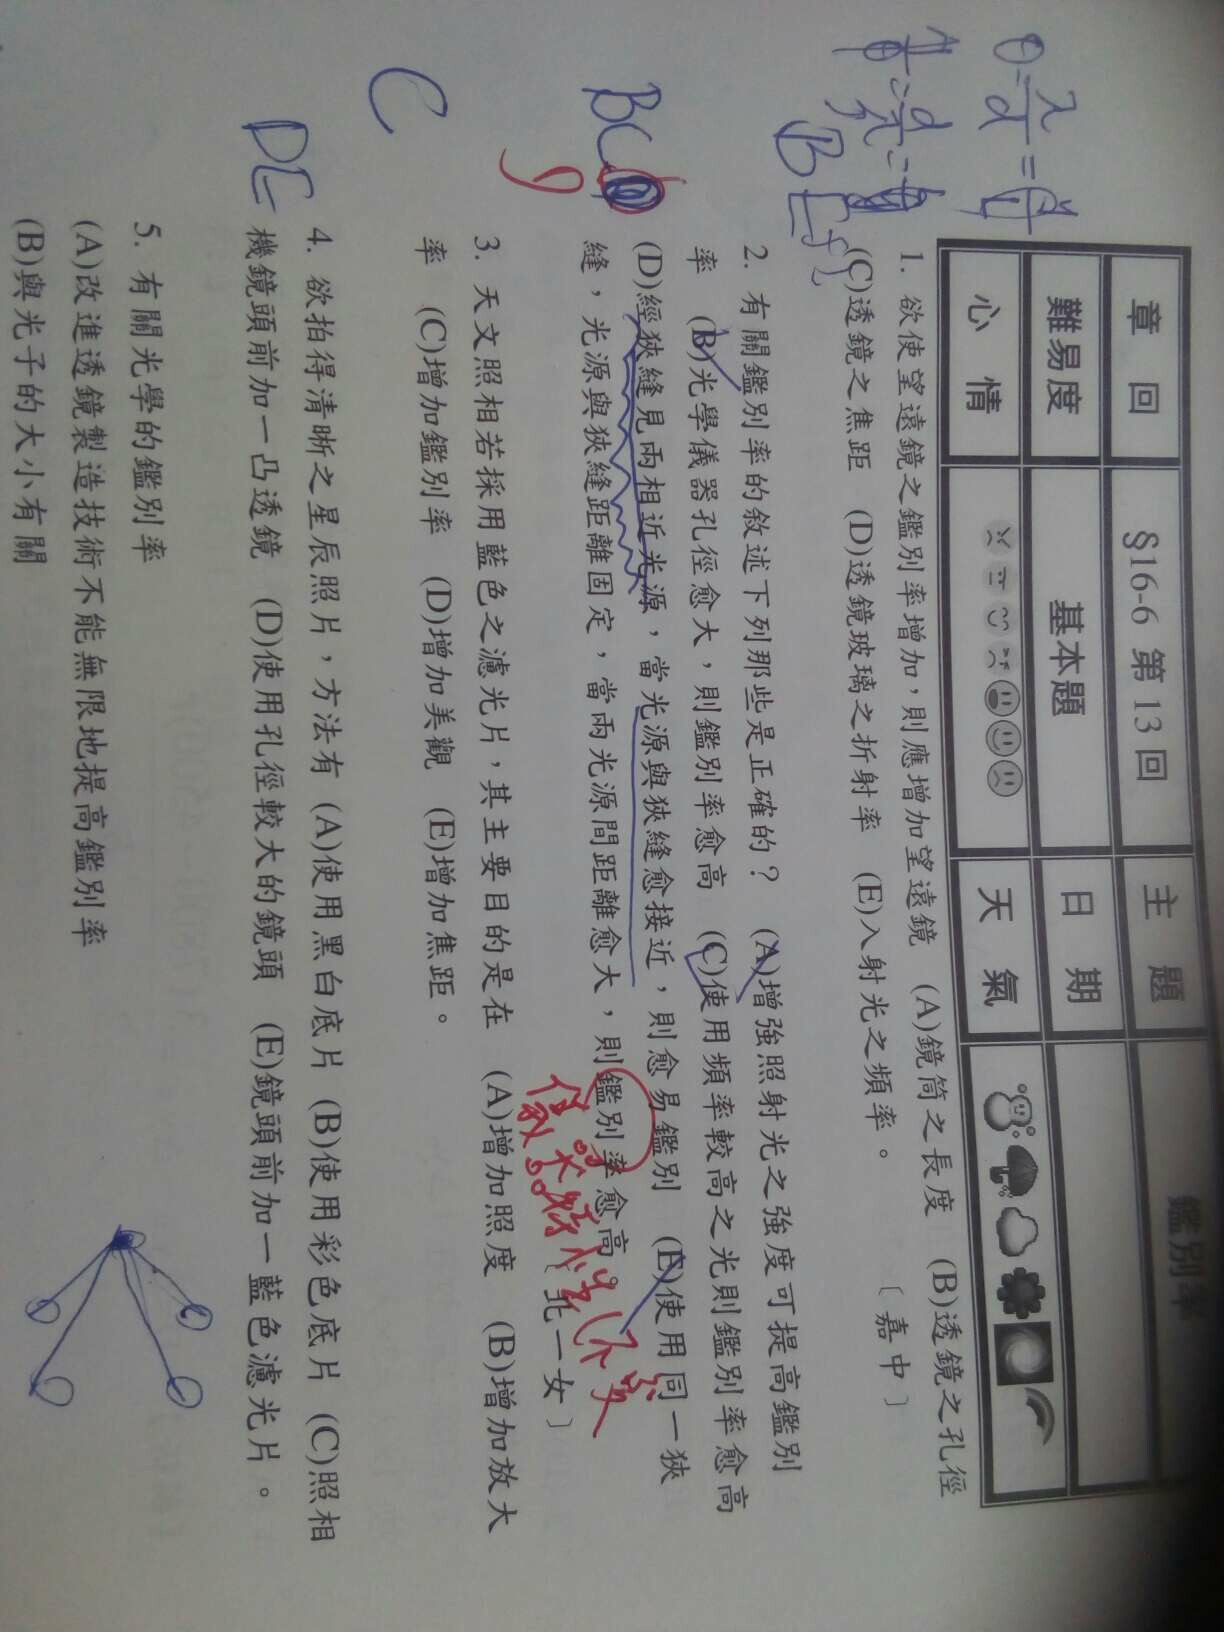 章回 §16-6 第 13 回 主題 鑑別率
難易度 基本題 日期
心情 天氣
1. 欲使望遠鏡之鑑別率增加，則應增加望遠鏡 (A)鏡筒之長度 (B)透鏡之孔徑
(C)透鏡之焦距 (D)透鏡玻璃之折射率 (E)入射光之頻率。 〔嘉中〕
2. 有關鑑別率的敘述下列那些是正確的？ (A)增強照射光之強度可提高鑑別
率 (B)光學儀器孔徑愈大，則鑑別率愈高 (C)使用頻率較高之光則鑑別率愈高
(D)經狹縫見兩相近光源，當光源與狹縫愈接近，則愈易鑑別 (E)使用同一狹
縫，光源與狹縫距離固定，當兩光源間距離愈大，則鑑別率愈高〔北一女〕
儀器特性不變
3. 天文照相若採用藍色之濾光片，其主要目的是在 (A)增加照度 (B)增加放大
率 (C)增加鑑別率 (D)增加美觀 (E)增加焦距。
4. 欲拍得清晰之星辰照片，方法有 (A)使用黑白底片 (B)使用彩色底片 (C)照相
機鏡頭前加一凸透鏡 (D)使用孔徑較大的鏡頭 (E)鏡頭前加一藍色濾光片。
5. 有關光學的鑑別率
(A)改進透鏡製造技術不能無限地提高鑑別率
(B)與光子的大小有關
BE
BC
C
DE